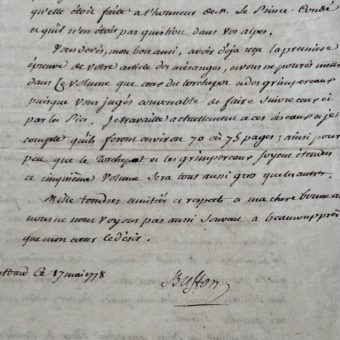 qu'elle étoit faite a l'honneur de m. le Prince Condé
et quil n'en étoit pas question dans vos alpes.
Vous devés, mon bon ami, avoir deja reçu la premiere
épreuve de votre article des mésanges, et vous ne pourés mettre
dans ce Volume que ceux du torchepot et des grimpereaux
puisque vous jugés convenable de faire suivre ceux ci
par les Pics. Je travaille actuellement a ces oiseaux et je
compte qu'ils feront environ 70 ou 75 pages; ainsi pour
peu que le Torchepot et les grimpereaux soyent étendus
ce cinquième Volume sera tout aussi gros que les autres.
Mille tendres amitiés et respects a ma chere bonne amie
nous ne nous voyons pas aussi souvent a beaucoup près
que mon cœur le désir.
Ce 17 mai 1778
Buffon